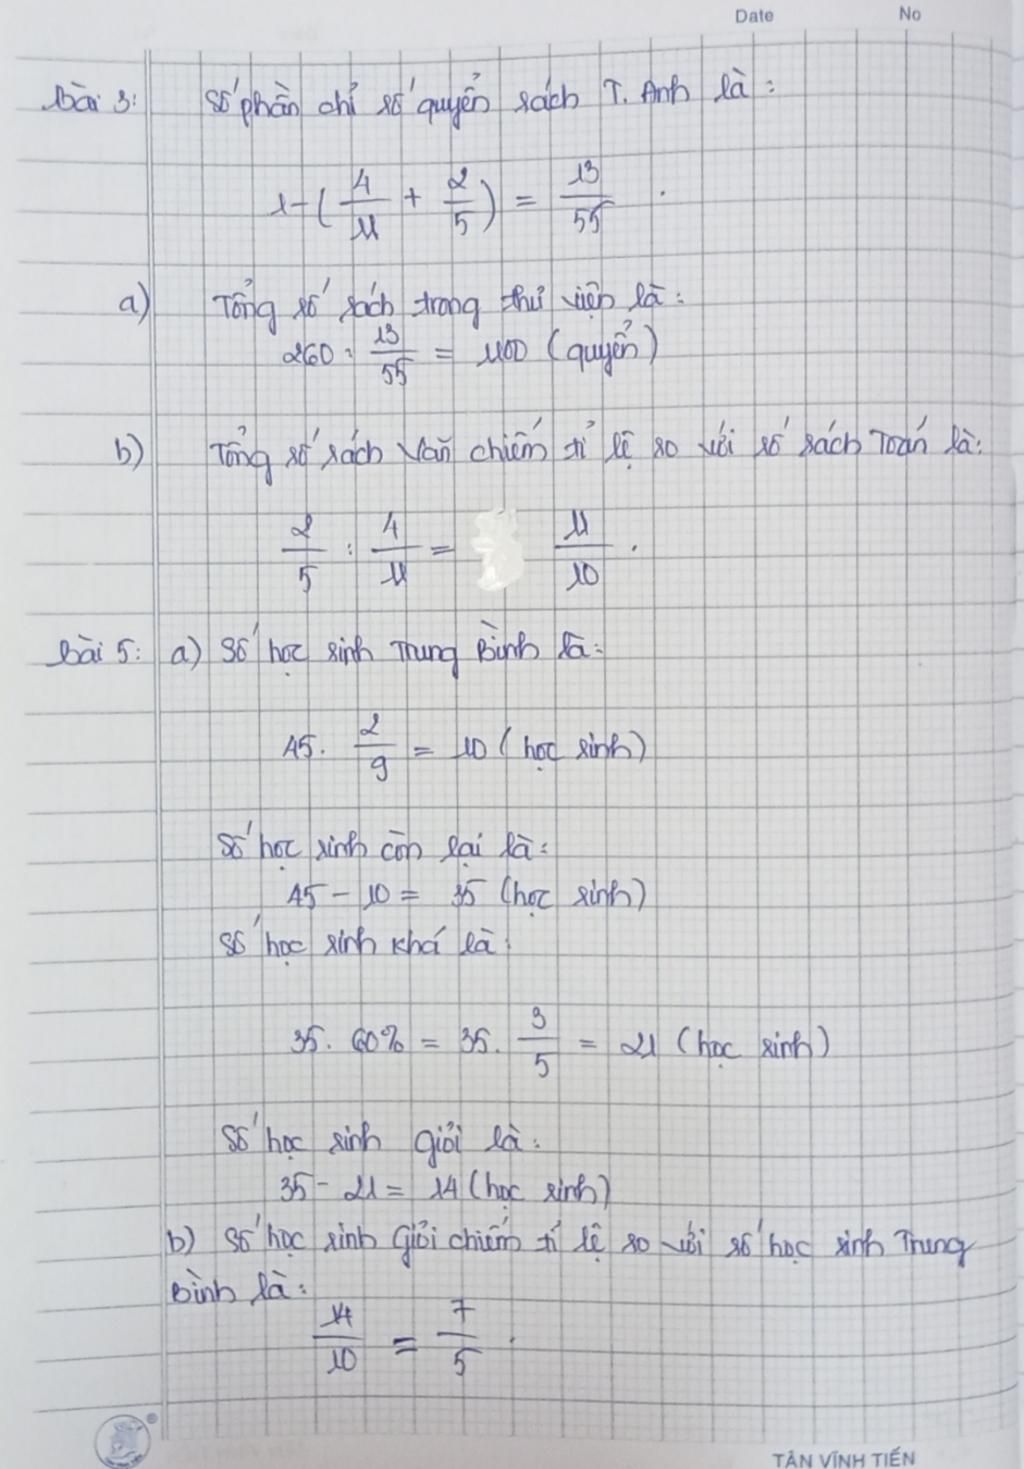 Date No
Bài 3: Số phần chỉ số quyển sách T. Anh là :
1-(4/11 + 2/5) = 13/55 .
a) Tổng số sách trong thư viện là :
260 : 13/55 = 1100 (quyển)
b) Tổng số sách Văn chiếm tỉ lệ so với số sách Toán là:
2/5 : 4/11 = 11/10 .
Bài 5: a) Số học sinh Trung Bình là:
45 . 2/9 = 10 (học sinh)
Số học sinh còn lại là :
45 - 10 = 35 (học sinh)
Số học sinh khá là :
35 . 60% = 35 . 3/5 = 21 (học sinh)
Số học sinh giỏi là :
35 - 21 = 14 (học sinh)
b) Số học sinh Giỏi chiếm tỉ lệ so với số học sinh Trung
Bình là :
14/10 = 7/5 .
TÂN VĨNH TIẾN